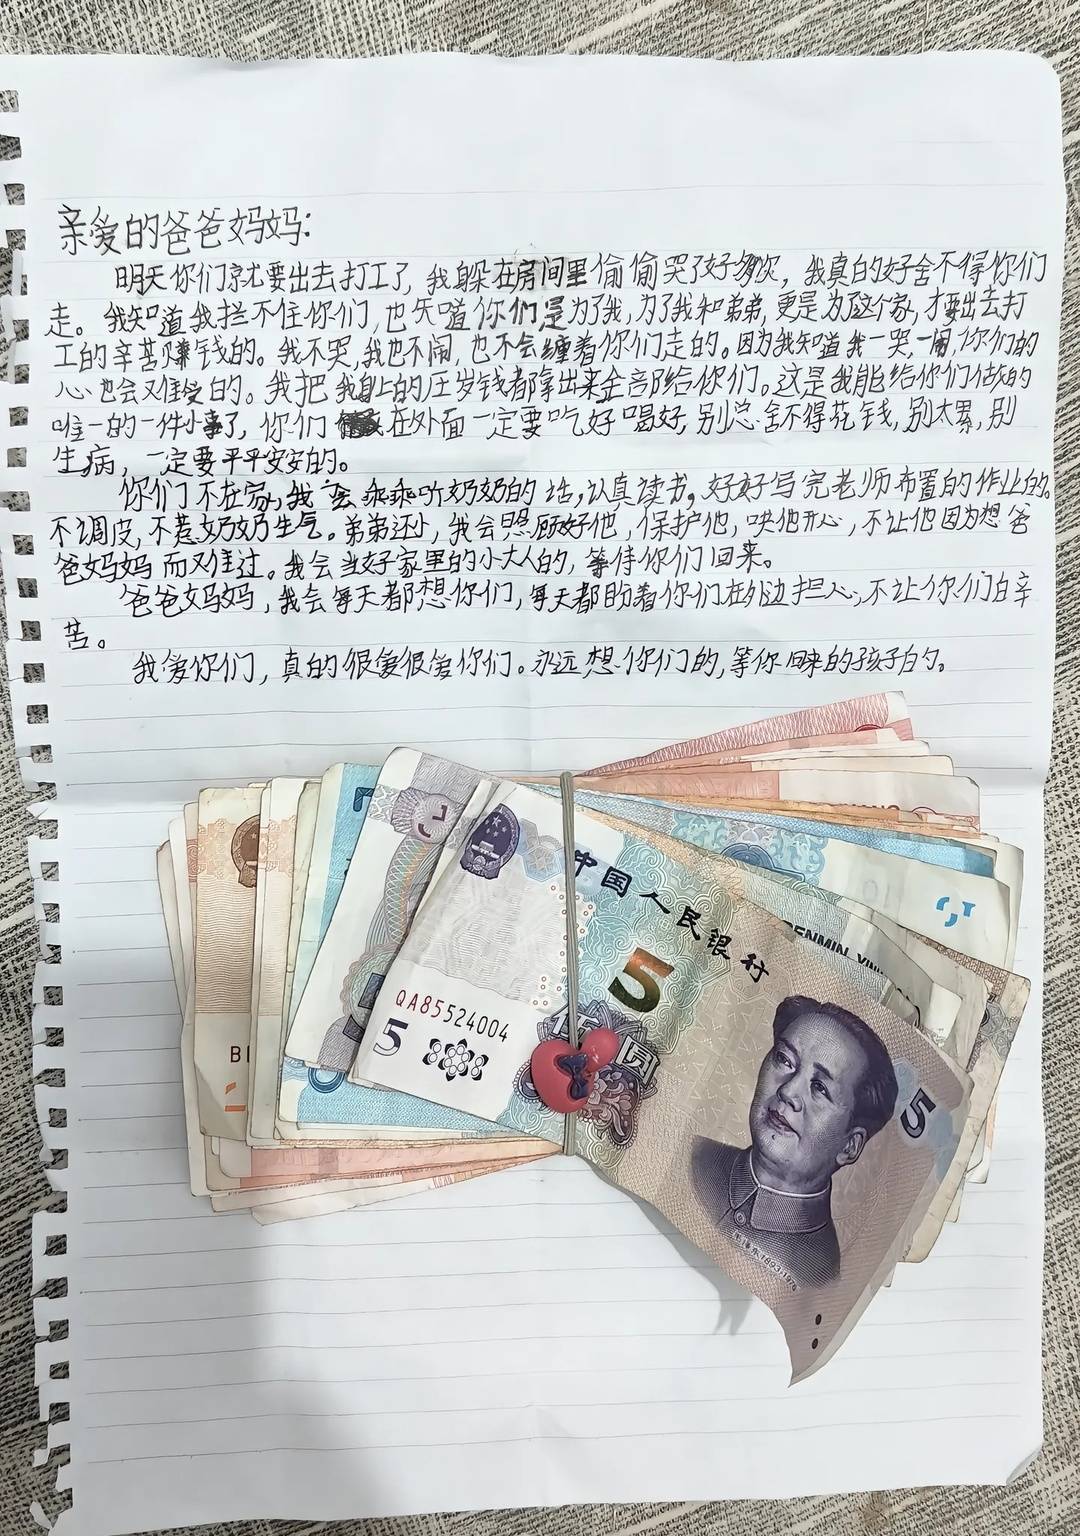 亲爱的爸爸妈妈:
明天你们就要出去打工了,我躲在房间里偷偷哭了好多次,我真的好舍不得你们
走。我知道我拦不住你们,也知道你们是为了我,为了我和弟弟,更是为了这个家,才要出去打
工的辛苦赚钱的。我不哭,我也不闹,也不会缠着你们走的。因为我知道我一哭,一闹,你们的
心也会难受的。我把我身上的压岁钱都拿出来全部给你们。这是我能给你们做的
唯一的一件小事了,你们在外面一定要吃好喝好,别总舍不得花钱,别太累,别
生病,一定要平平安安的。
你们不在家,我会乖乖听奶奶的话,认真读书,好好写完老师布置的作业的。
不调皮,不惹奶奶生气。弟弟还小,我会照顾好他,保护他,哄他开心,不让他因为想爸
爸妈妈而难过。我会当好家里的小大人的,等待你们回来。
爸爸妈妈,我会每天都想你们,每天都盼着你们在外边担心,不让你们白辛
苦。
我爱你们,真的很爱很爱你们。永远想你们的,等你回来的孩子的。
中国人民银行
5
QA85524004
5
伍圆
5
毛泽东1893-1976
RENMIN YIN
10